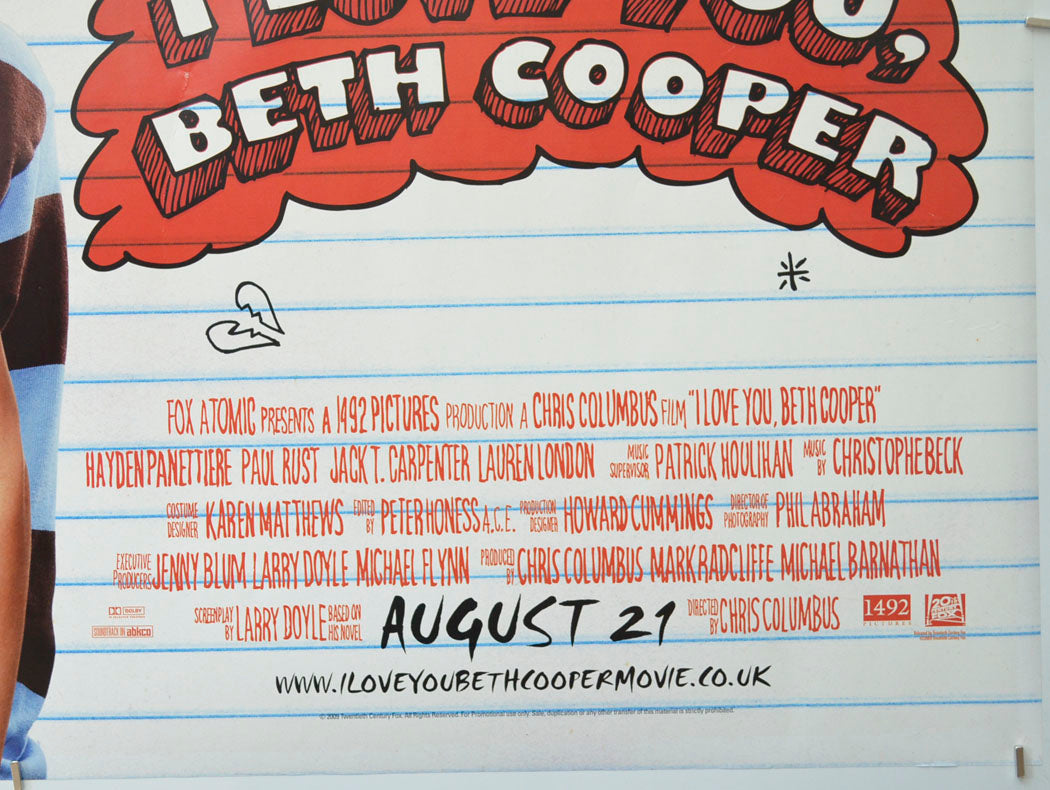 I LOVE YOU,
BETH COOPER
FOX ATOMIC PRESENTS A 1492 PICTURES PRODUCTION A CHRIS COLUMBUS FILM "I LOVE YOU, BETH COOPER"
HAYDEN PANETTIERE PAUL RUST JACK T. CARPENTER LAUREN LONDON MUSIC SUPERVISOR PATRICK HOULIHAN MUSIC BY CHRISTOPHE BECK
COSTUME DESIGNER KAREN MATTHEWS EDITED BY PETER HONESS A.C.E. PRODUCTION DESIGNER HOWARD CUMMINGS DIRECTOR OF PHOTOGRAPHY PHIL ABRAHAM
EXECUTIVE PRODUCERS JENNY BLUM LARRY DOYLE MICHAEL FLYNN PRODUCED BY CHRIS COLUMBUS MARK RADCLIFFE MICHAEL BARNATHAN
DOLBY
SOUNDTRACK ON abkco
SCREENPLAY BY LARRY DOYLE BASED ON HIS NOVEL
AUGUST 21
DIRECTED BY CHRIS COLUMBUS
1492
PICTURES
20TH CENTURY FOX
WWW.ILOVEYOUBETHCOOPERMOVIE.CO.UK
© 2009 Twentieth Century Fox. All Rights Reserved. For Promotional use only. Sale, duplication or any other transfer of this material is strictly prohibited.